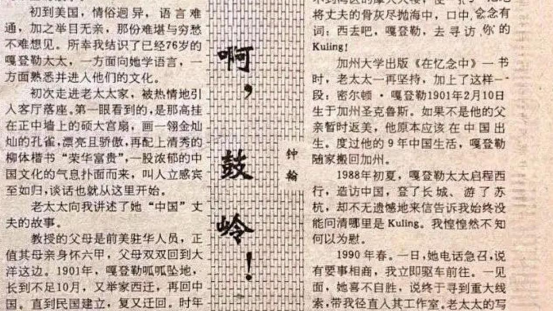 初到美国，情俗迥异，语言难
通，加之举目无亲，那份难堪与穷愁
不难想见。所幸我结识了已经76岁的
嘎登勒太太，一方面向她学语言，一
方面熟悉并进入他们的文化。
初次走进老太太家，被热情地引
人客厅落座。第一眼看到的，是那高挂
在正中墙上的硕大宫扇，画一翎金灿
灿的孔雀，漂亮且骄傲，再配上清秀的
柳体楷书“荣华富贵”，一股浓郁的中
国文化的气息扑面而来，叫人立感宾
至如归，谈话也就从这里开始。
老太太向我讲述了她“中国”丈
夫的故事。
教授的父母是前美驻华人员，正
值其母亲身怀六甲，父母双双回到大
洋这边。1901年，嘎登勒呱呱坠地，
长到不足10月，又举家西迁，再回中
国。直到民国建立，复又迁回。时年
啊，鼓岭！
钟翰
将丈夫的骨灰尽抛海中，口中念念有
词：西去吧，嘎登勒，去寻访你的
Kuling！
加州大学出版《在忆念中》一书
时，老太太一再坚持，加上了这样一
段：密尔顿·嘎登勒1901年2月10日
生于加州圣克鲁斯。如果不是他的父
亲暂时返美，他原本应该在中国出
生。度过他的9年中国生活，嘎登勒
随家搬回加州。
1988年初夏，嘎登勒太太启程西
行，造访中国，登了长城、游了苏
杭，却不无遗憾地来信告诉我始终没
能问清哪里是Kuling。我惶惶然不知
何以为慰。
1990年春。一日，她电话急召，说
有要事相商，我立即驱车前往。一见
面，她喜不自胜，说终于寻到重大线
索，带我径直人其工作室。老太太的写